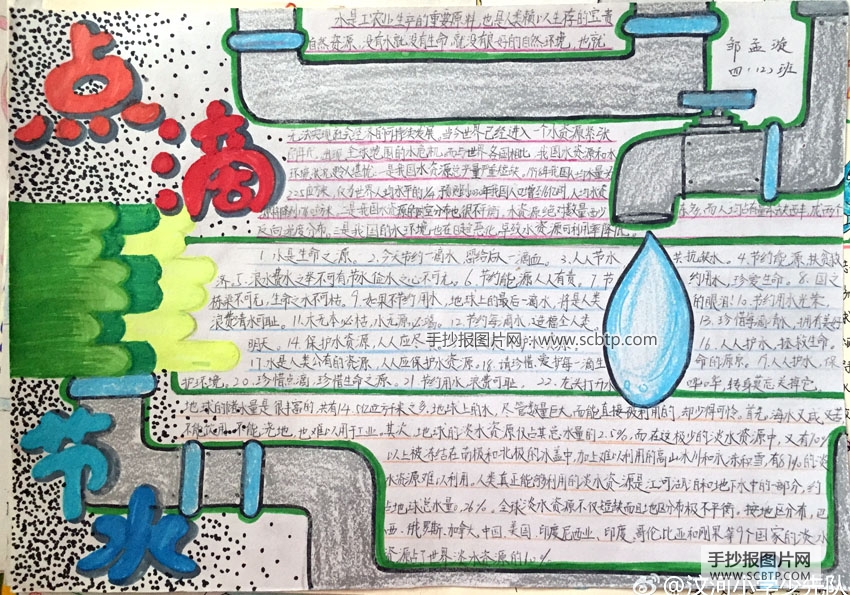 点滴
节水
水是工农业生产的重要原料,也是人类赖以生存的宝贵
自然资源,没有水就没有生命,就没有良好的自然环境,也就
邹孟漩
四(12)班
无法实现社会经济的可持续发展。当今世界已经进入一个水资源紧张
1.水是生命之源。2.今天节约一滴水,留给后人一滴血。3.人人节水 共抗缺水。4.节约能源,扶贫救
济。5.浪费水之举不可有节水俭水之心不可无。6.节约能源人人有责。7.节 约用水,珍爱生命。8.国之
桥梁不可无,生命之水不可枯。9.如果不节约用水,地球上的最后一滴水,将是人类 的眼泪!10.节约用水光荣,
浪费清水可耻。11.木无本必枯,水无源必竭。12.节约每滴水,造福全人类 13.珍惜每滴清水,拥有美好
明天。14.保护水资源,人人应尽 16.人人护水,拯救生命。
17.水是人类公有的资源,人人应保护水资源。18.请珍惜、爱护每一滴生 命的源泉。19.人人护水,保
护环境。20.珍惜点滴,珍惜生命之源。21.节约用水,浪费可耻。22.龙头打开水 哗哗,转身莫忘关掉它。
手抄报图片网:www.scbtp.com
地球的储水量是很丰富的,共有14.5亿立方千米之多。地球上的水,尽管数量巨大,而能直接被利用的,却少得可怜。首先,海水又咸又苦
不能饮用,不能浇地,也难以用于工业。其次,地球的淡水资源仅占其总水量的2.5%,而在这极少的淡水资源中,又有70%
以上被冻结在南极和北极的冰盖中,加上难以利用的高山冰川和永冻积雪,有87%的淡
水资源难以利用。人类真正能够利用的淡水资源是江河湖泊和地下水中的一部分,约
占地球总水量0.26%。全球淡水资源不仅短缺而且地区分布极不平衡。按地区分布,巴
西、俄罗斯、加拿大、中国、美国、印度尼西亚、印度、哥伦比亚和刚果等9个国家的淡水
资源占了世界淡水资源的60%
手抄报图片网
WWW.SCBTP.COM